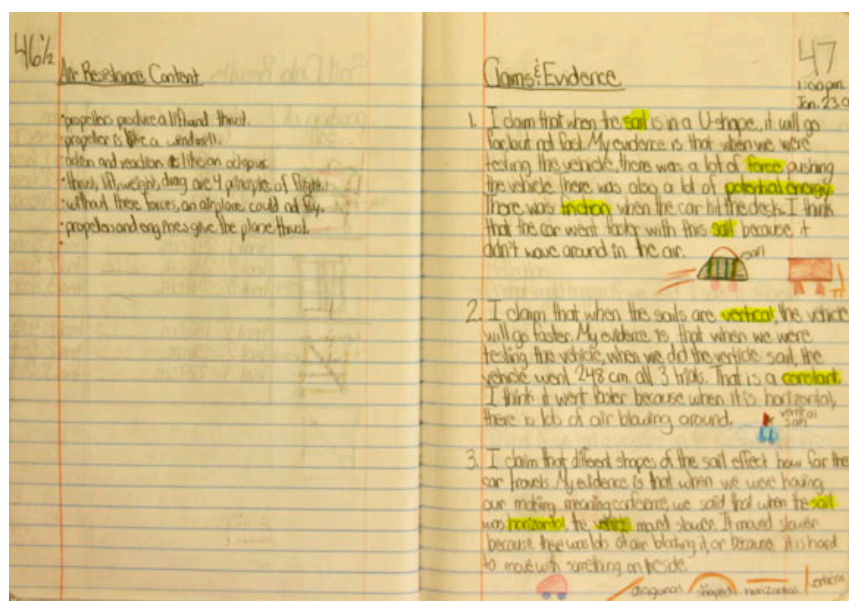 46½
Air Resistance Content
•propellers produce a lift and thrust.
•propeller is like a windmill.
•action and reaction is like an octopus.
•thrust, lift, weight, drag are 4 principles of flight.
•without these forces, an airplane could not fly.
•propellers and engines give the plane thrust.
•
47
Claims & Evidence
1:00pm
Jan. 23, 0
1. I claim that when the sail is in a U-shape, it will go
far, but not fast. My evidence is that when we were
testing the vehicle, there was a lot of force pushing
the vehicle. There was also a lot of potential energy.
There was friction when the car hit the desk. I think
that the car went faster with this sail because it
didn't wave around in the air.
sail
2. I claim that when the sails are vertical, the vehicle
will go faster. My evidence is, that when we were
testing the vehicle, when we did the verticle sail, the
vehicle went 248 cm all 3 trials. That is a constant.
I think it went faster because when it is horizontal,
there is lots of air blowing around.
vertical
sail
3. I claim that different shapes of the sail effect how far the
car travels. My evidence is that when we were having
our making meaning conference, we said that when the sail
was horizontal, the vehicle moved slower. It moved slower
because there was lots of air blocking it, or because it is hard
to move with something on the side.
diagonal shaped horizontal vertical